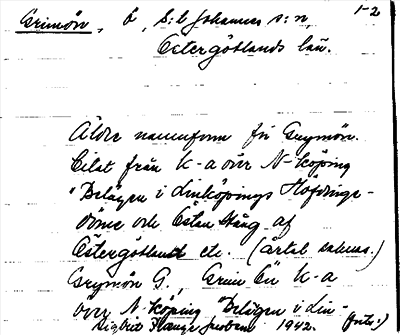 Grimön, Ö, S:t Johannes s:n, 1-2
Östergötlands län.
Äldre namnform för Grymön.
Citat från K-a över N-köping
"Belägen i Linköpings Höfdinge-
döme och Östan Stång af
Östergötland etc. (årtal saknas.)
Grymön G., Grim Ön K-a
över N-köping "Belägen i Lin-
1942.